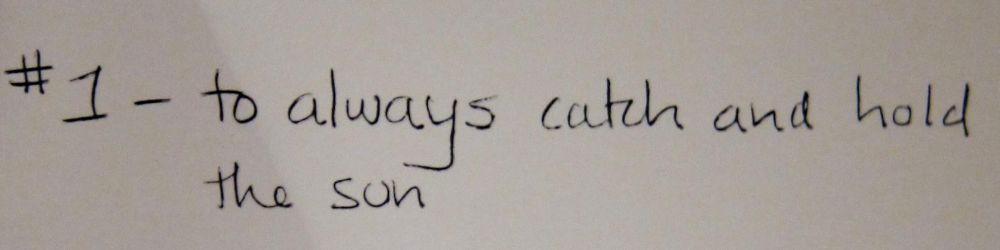 #1 - to always catch and hold
the sun